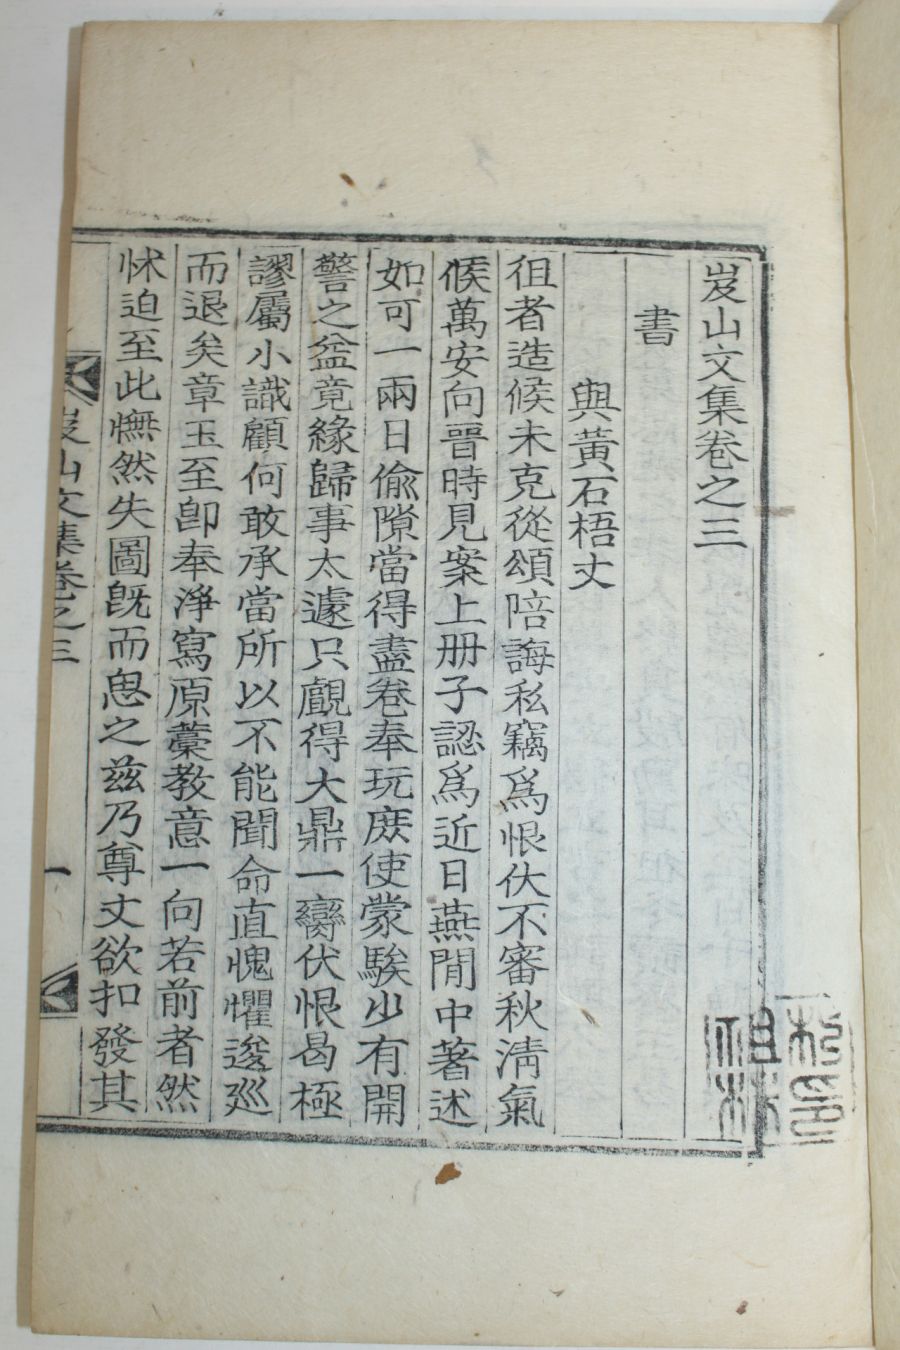 岌山文集卷之三
書
與黃石梧丈
徂者造候未克從頌陪誨私竊爲恨伏不審秋淸氣
候萬安向晉時見案上册子認爲近日燕閒中著述
如可一兩日偸隙當得盡卷奉玩庶使蒙騃少有開
警之益竟緣歸事太遽只覰得大鼎一臠伏恨曷極
謬屬小識顧何敢承當所以不能聞命直愧懼逡巡
而退矣章玉至卽奉淨寫原藁敎意一向若前者然
怵迫至此憮然失圖旣而思之玆乃尊丈欲扣發其
岌山文集卷之三
一